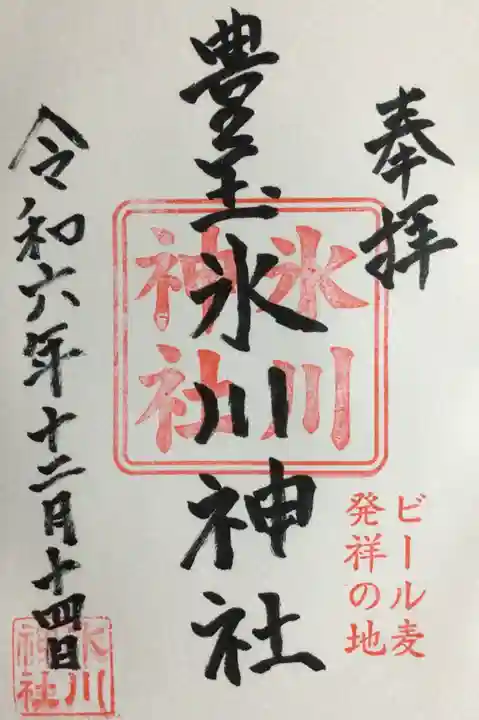 奉拝
ビール麦
発祥の地
豊玉氷川神社
氷川
神社
令和六年十二月十四日
氷川
神社